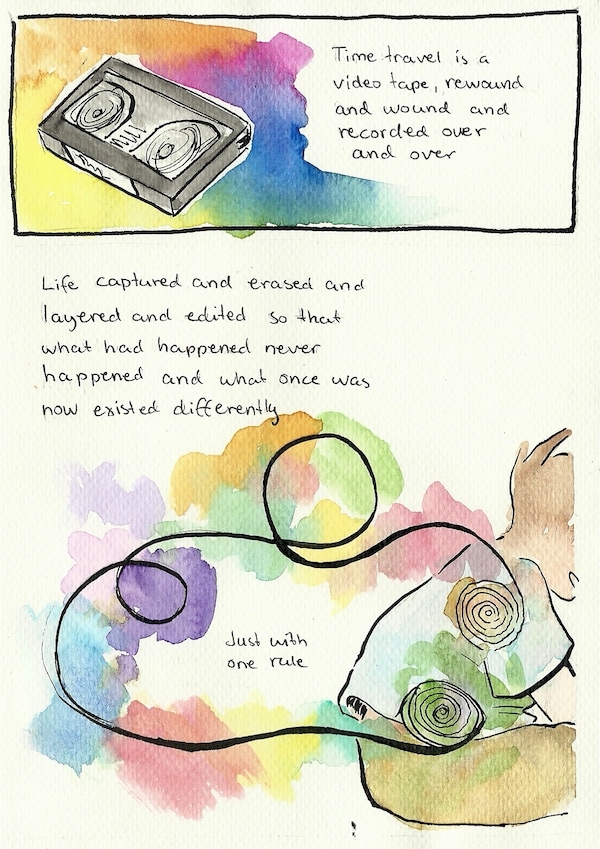 Time travel is a
video tape, rewound
and wound and
recorded over
and over
Life captured and erased and
layered and edited so that
what had happened never
happened and what once was
now existed differently
Just with
one rule